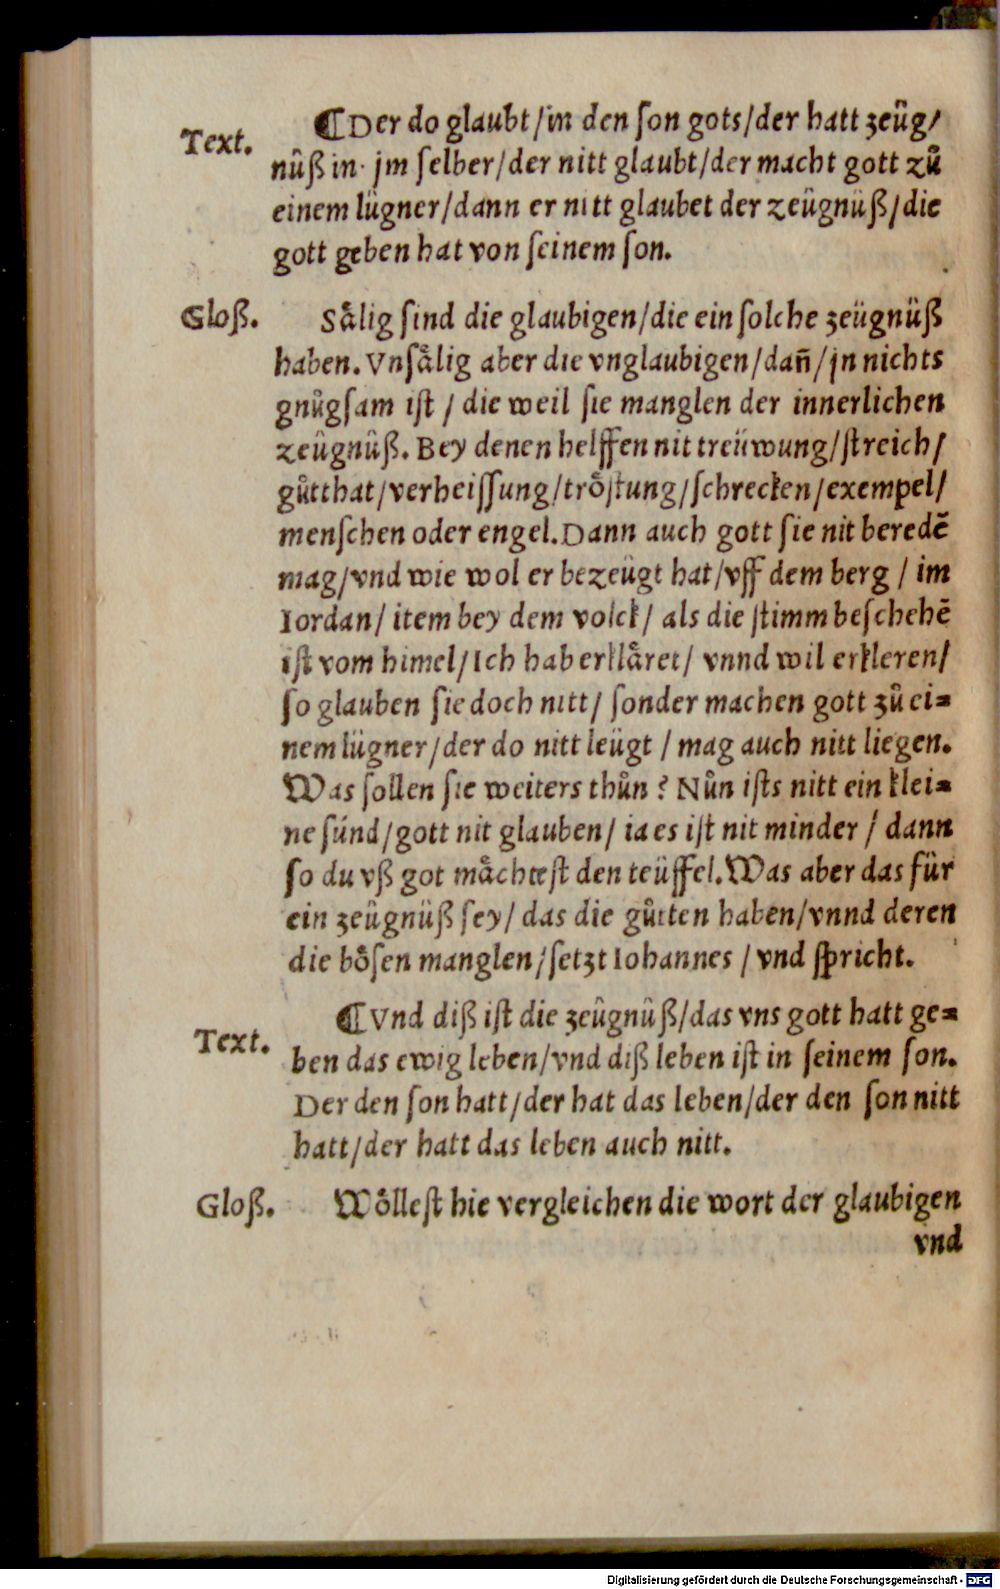 Text.
¶ Der do glaubt/in den ſon gots/der hatt zeüg/
nüß in jm ſelber/der nitt glaubt/der macht gott zů
einem lügner/dann er nitt glaubet der zeügnüß/die
gott geben hat von ſeinem ſon.
Gloß.
Sålig ſind die glaubigen/die ein ſolche zeügnüß
haben. Vnſålig aber die vnglaubigen/dañ/jn nichts
gnůgſam iſt / die weil ſie manglen der innerlichen
zeügnüß. Bey denen helffen nit treüwung/ſtreich/
gůtthat/verheiſſung/trőſtung/ſchrecken/exempel/
menſchen oder engel. Dann auch gott ſie nit beredē
mag/vnd wie wol er bezeügt hat/vff dem berg / im
Iordan/ item bey dem volck/ als die ſtimm beſchehē
iſt vom himel/Ich hab erklåret/ vnnd wil erkleren/
ſo glauben ſie doch nitt/ ſonder machen gott zů ei=
nem lügner/der do nitt leügt / mag auch nitt liegen.
Was ſollen ſie weiters thůn? Nůn iſts nitt ein klei=
ne ſünd/gott nit glauben/ ia es iſt nit minder / dann
ſo du vß got måchteſt den teüffel. Was aber das für
ein zeügnüß ſey/ das die gůtten haben/vnnd deren
die bőſen manglen/ſetzt Iohannes / vnd ſpricht.
Text.
¶ Vnd diß iſt die zeügnüß/das vns gott hatt ge=
ben das ewig leben/vnd diß leben iſt in ſeinem ſon.
Der den ſon hatt/der hat das leben/der den ſon nitt
hatt/der hatt das leben auch nitt.
Gloß.
Wőlleſt hie vergleichen die wort der glaubigen
vnd
Digitalisierung gefördert durch die Deutsche Forschungsgemeinschaft - DFG